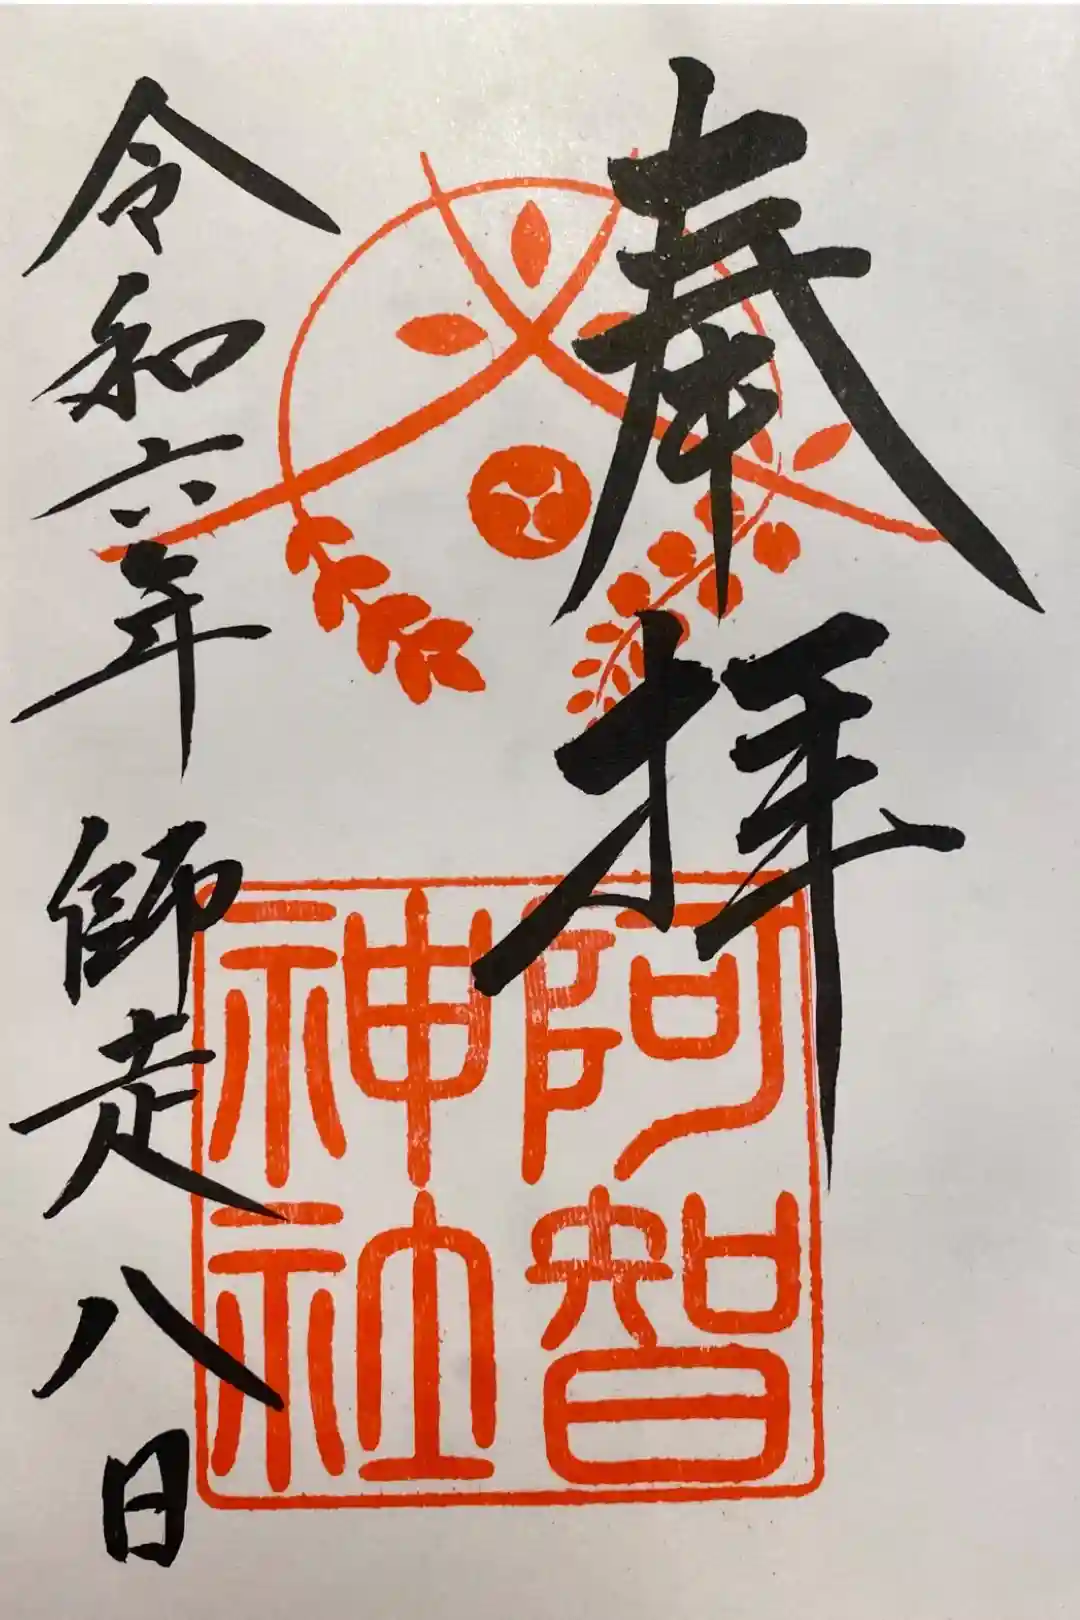 奉拝
阿智
神社
令和六年 師走 八日